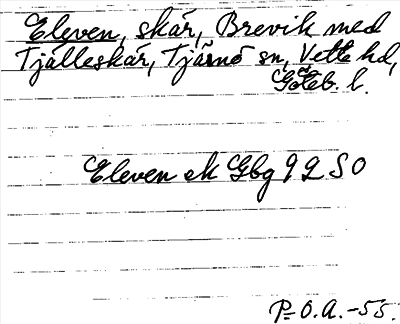 Eleven, skär, Brevik med
Tjälleskär, Tjärnö sn, Vette hd,
Göteb. l.
Eleven ek Gbg 9 2 SO
P-O.A.-55.